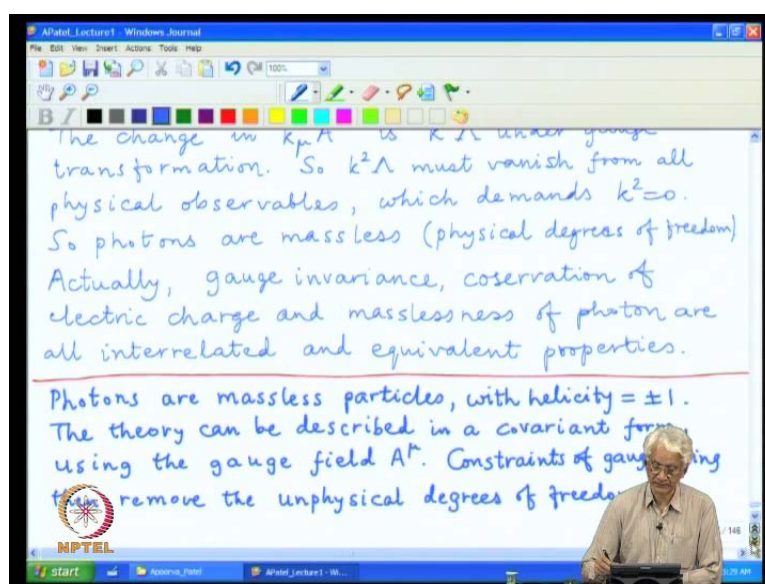 APatel_Lecture1 - Windows Journal
File Edit View Insert Actions Tools Help
100%
B I
The change in kμ A is k Λ under gauge
transformation. So k²Λ must vanish from all
physical observables, which demands k²=0.
So photons are massless (physical degrees of freedom)
Actually, gauge invariance, coservation of
electric charge and masslessness of photon are
all interrelated and equivalent properties.
Photons are massless particles, with helicity = ±1.
The theory can be described in a covariant form,
using the gauge field Aμ. Constraints of
remove the unphysical degrees of
/ 146
NPTEL
start Apoorva_Patel APatel_Lecture1 - Wi... :29 AM